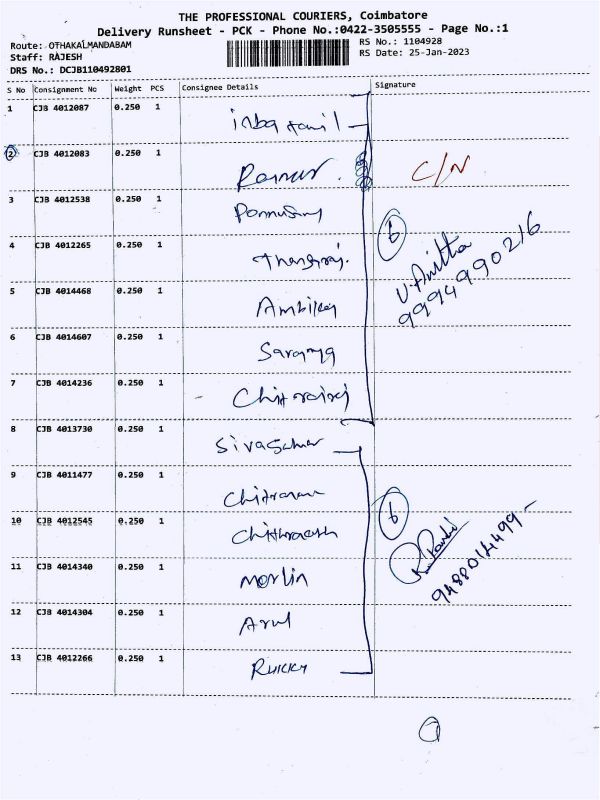 THE PROFESSIONAL COURIERS, Coimbatore
Delivery Runsheet - PCK - Phone No.:0422-3505555 - Page No.:1
Route: OTHAKALMANDABAM RS No.: 1104928
Staff: RAJESH RS Date: 25-Jan-2023
DRS No.: DCJB110492801
S No Consignment No Weight PCS Consignee Details Signature
1 CJB 4012087 0.250 1
2 CJB 4012083 0.250 1 C/N
3 CJB 4012538 0.250 1
4 CJB 4012265 0.250 1 6 V.Anitha
9994990216
5 CJB 4014468 0.250 1
6 CJB 4014607 0.250 1 Saranya
7 CJB 4014236 0.250 1
8 CJB 4013730 0.250 1
9 CJB 4011477 0.250 1
10 CJB 4012545 0.250 1 6
11 CJB 4014340 0.250 1 Merlin 9488014499
12 CJB 4014304 0.250 1 Arul
13 CJB 4012266 0.250 1